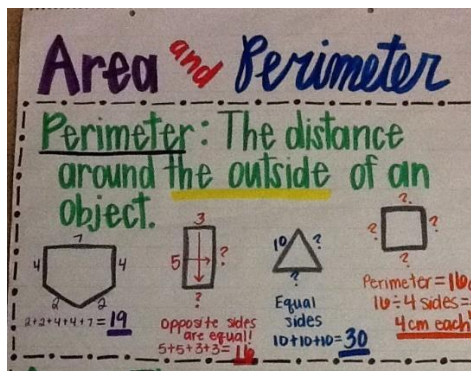 Area and Perimeter
Perimeter: The distance
around the outside of an
object.
7
4
4
2
2
2+2+4+4+7=19
3
5
?
?
Opposite sides
are equal!
5+5+3+3=16
10
?
?
Equal
sides
10+10+10=30
?
?
?
?
Perimeter=16
16÷4 sides=
4cm each